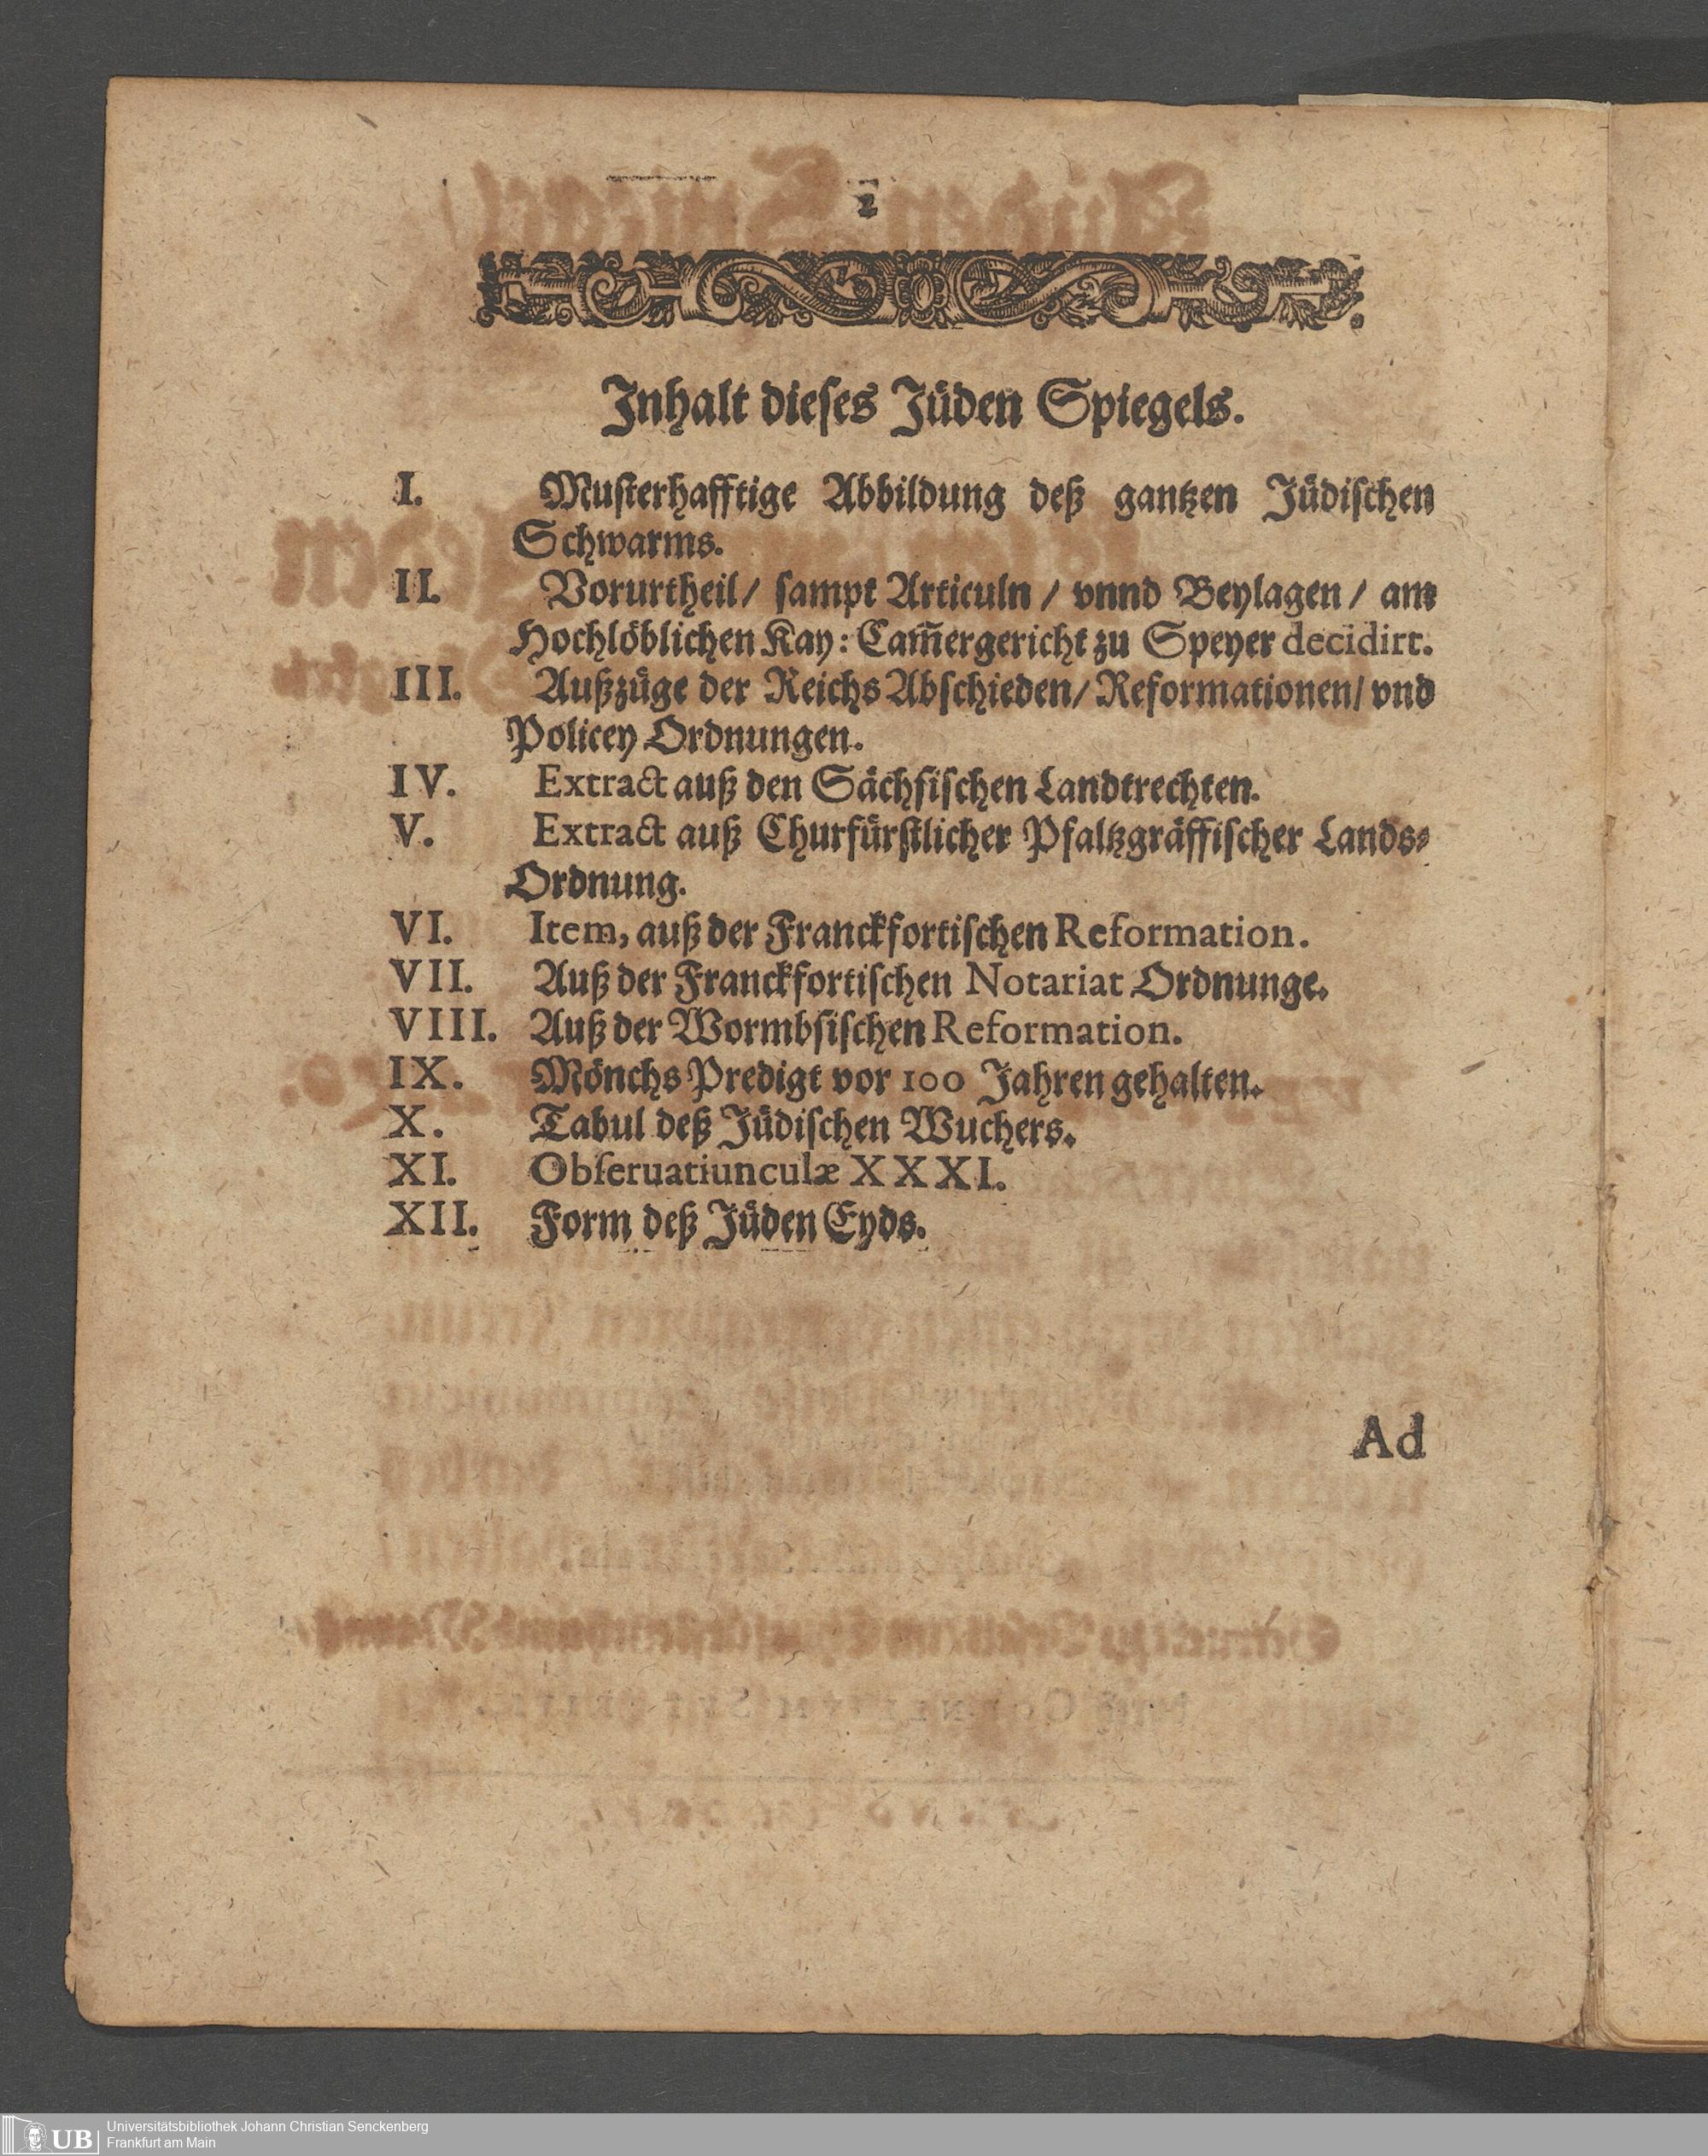 2
Inhalt dieses Jüden Spiegels.
I. Musterhafftige Abbildung deß gantzen Jüdischen
Schwarms.
II. Vorurtheil/ sampt Articuln / vnnd Beylagen / am
Hochlöblichen Kay: Cam̃ergericht zu Speyer decidirt.
III. Außzüge der Reichs Abschieden/ Reformationen/ vnd
Policey Ordnungen.
IV. Extract auß den Sächsischen Landtrechten.
V. Extract auß Churfürstlicher Pfaltzgräffischer Lands-
Ordnung.
VI. Item, auß der Franckfortischen Reformation.
VII. Auß der Franckfortischen Notariat Ordnunge.
VIII. Auß der Wormbsischen Reformation.
IX. Mönchs Predigt vor 100 Jahren gehalten.
X. Tabul deß Jüdischen Wuchers.
XI. Obseruatiunculæ XXXI.
XII. Form deß Jüden Eyds.
Ad
UB Universitätsbibliothek Johann Christian Senckenberg
Frankfurt am Main